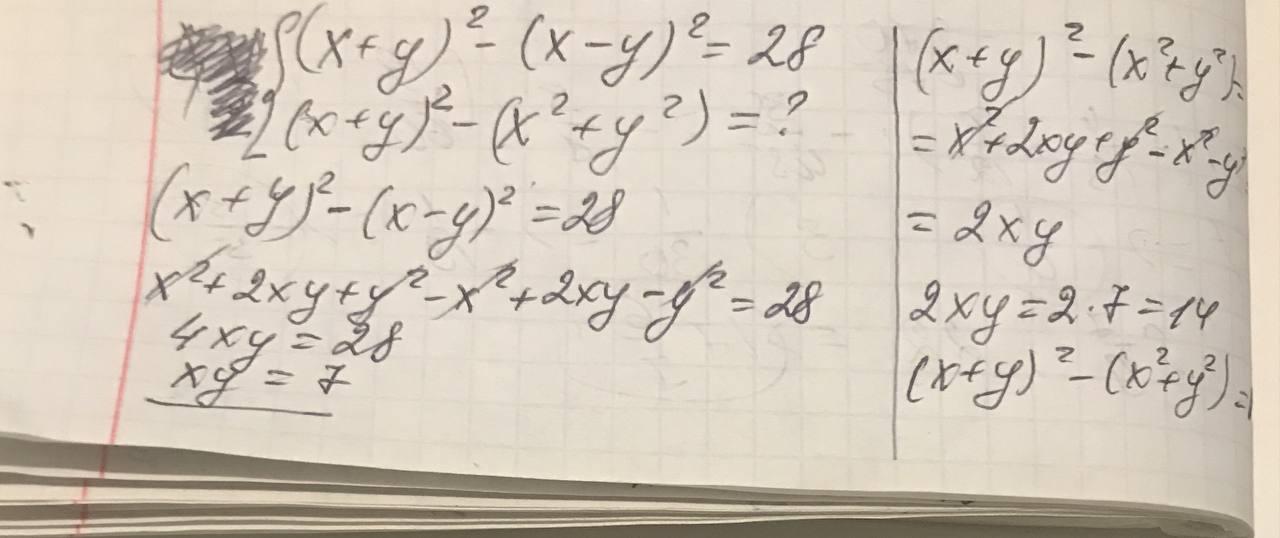 (x+y)²-(x-y)²=28
(x+y)²-(x²+y²)=?
(x+y)²-(x-y)²=28
x²+2xy+y²-x²+2xy-y²=28
4xy=28
xy=7
(x+y)²-(x²+y²)=
=x²+2xy+y²-x²-y
=2xy
2xy=2·7=14
(x+y)²-(x²+y²)=